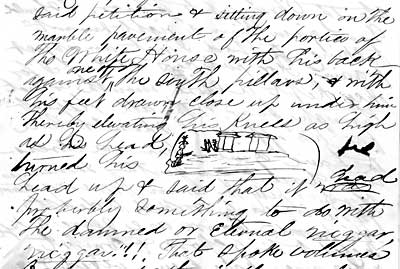 said petition & sitting down on the
marble pavement of the portico of
the White House with his back
against the south pillars, & with
his feet drawn close up under him
thereby elevating his knees as high
as his head, he
turned his
head up & said that it had
probably something to do with
the damned or eternal niggar,
niggar"!! That spoke volumes